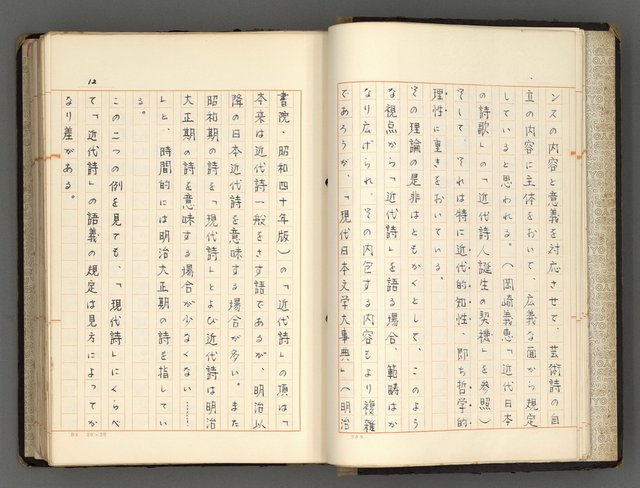 ンスの内容と意義を対応させて、芸術詩の自
立の内容に主体をおいて、広義な面から規定
していると思われる。(岡崎義恵「近代日本
の詩歌」の「近代詩人誕生の契機」を参照)
そして、それは特に近代的知性、即ち哲学的
理性に重きをおいている。
その理論の是非はともかくとして、このよう
な視点から「近代詩」を語る場合、範疇はか
なり広げられ、その内包する内容もより複雑
であろうが、「現代日本文学大事典」(明治
12
書院・昭和四十年版)の「近代詩」の項は「
本来は近代詩一般をさす語であるが、明治以
降の日本近代詩を意味する場合が多い。また
昭和期の詩を「現代詩」とよび近代詩は明治
大正期の詩を意味する場合が少なくない……
」と、時間的には明治大正期の詩を指してい
る。
この二つの例を見ても、「現代詩」にくらべ
て「近代詩」の語義の規定は見方によってか
なり差がある。
B4 20×20